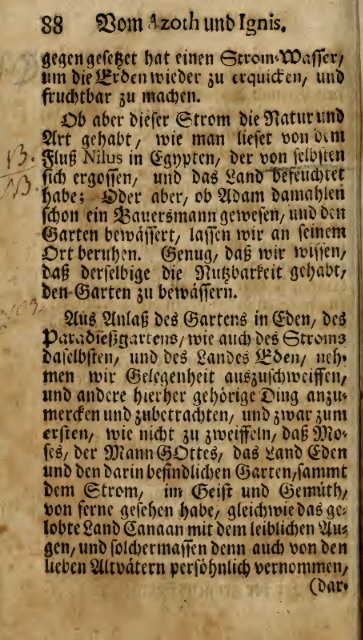 88 Vom Azoth und Ignis.
gegen gesetzet hat einen Strom-Wasser/
um die Erden wieder zu erquicken/ und
fruchtbar zu machen.
Ob aber dieser Strom die Natur und
Art gehabt/ wie man lieset von dem
Fluß Nilus in Egypten/ der von selbsten
sich ergossen/ und das Land befeuchtet
habe; Oder aber/ ob Adam damahlen
schon ein Bauersmann gewesen/ und den
Garten bewässert/ lassen wir an seinem
Ort beruhen. Genug/ daß wir wissen/
daß derselbige die Nutzbarkeit gehabt/
den Garten zu bewässern.
Aus Anlaß des Gartens in Eden/ des
Paradießgartens/ wie auch des Stroms
daselbsten/ und des Landes Eden/ neh-
men wir Gelegenheit auszuschweiffen/
und andere hierher gehörige Ding anzu-
mercken und zubetrachten/ und zwar zum
ersten/ wie nicht zu zweiffeln/ daß Mo-
ses/ der Mann GOttes/ das Land Eden
und den darin befindlichen Garten/sammt
dem Strom/ im Geist und Gemüth/
von ferne gesehen habe/ gleich wie das ge-
lobte Land Canaan mit dem leiblichen Au-
gen/ und solchermassen denn auch von den
lieben Altvätern persöhnlich vernommen/
(dar-